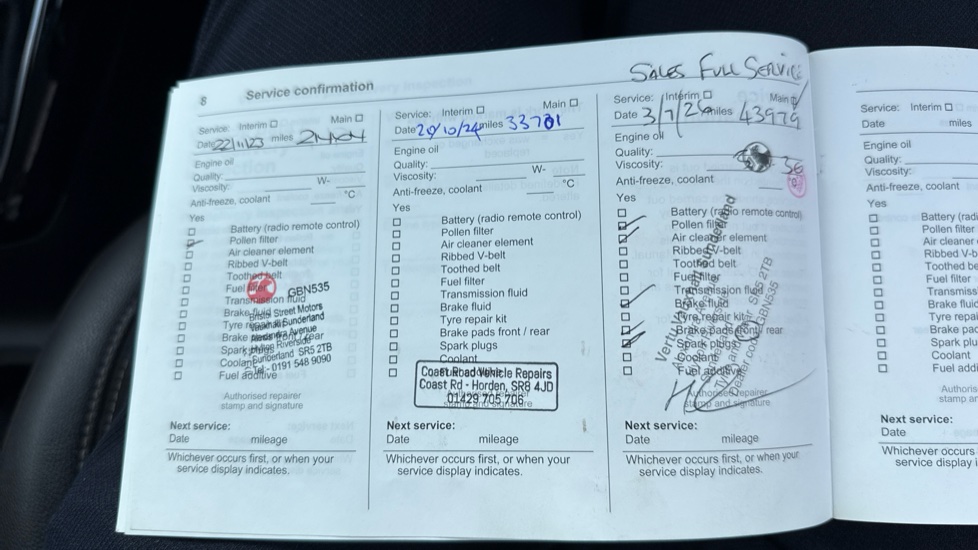 8 Service confirmation
Service: Interim ☐ Main ☐
Date 22/11/23 miles
Engine oil
Quality:
Viscosity: W-
Anti-freeze, coolant °C
Yes
Battery (radio remote control)
Pollen filter
Air cleaner element
Ribbed V-belt
Toothed belt
Fuel filter
Transmission fluid
Brake fluid
Tyre repair kit
Brake pads front / rear
Spark plugs
Coolant
Fuel additive
GBN535
Bristol Street Motors
Vauxhall Sunderland
Alexandra Avenue
Hylton Riverside
Sunderland SR5 2TB
Tel - 0191 548 9090
Authorised repairer
stamp and signature
Next service:
Date mileage
Whichever occurs first, or when your
service display indicates.
Service: Interim ☐ Main ☐
Date 29/10/24 miles 33701
Engine oil
Quality:
Viscosity: W-
Anti-freeze, coolant °C
Yes
Battery (radio remote control)
Pollen filter
Air cleaner element
Ribbed V-belt
Toothed belt
Fuel filter
Transmission fluid
Brake fluid
Tyre repair kit
Brake pads front / rear
Spark plugs
Coolant
Coast Road Vehicle Repairs
Coast Rd - Horden, SR8 4JD
01429 705 706
stamp and signature
Next service:
Date mileage
Whichever occurs first, or when your
service display indicates.
SALES FULL SERVICE
Service: Interim ☐ Main ☐
Date 3/7/2 miles 43979
Engine oil
Quality:
Viscosity:
Anti-freeze, coolant
Yes
Battery (radio remote control)
Pollen filter
Air cleaner element
Ribbed V-belt
Toothed belt
Fuel filter
Transmission fluid
Brake fluid
Tyre repair kit
Brake pads front / rear
Spark plugs
Coolant
Fuel additive
Vertu Vauxhall Sunderland
SR5 2TB
Dealer code: GBN535
Authorised repairer
stamp and signature
Next service:
Date mileage
Whichever occurs first, or when your
service display indicates.
Service: Interim ☐
Date miles
Engine oil
Quality:
Viscosity:
Anti-freeze, coolant
Yes
Battery (radi
Pollen filter
Air cleaner
Ribbed V-be
Toothed be
Fuel filter
Transmiss
Brake fluid
Tyre repai
Brake pa
Spark plu
Coolant
Fuel addi
Authoris
stamp an
Next service:
Date
Whichever occurs
service display i